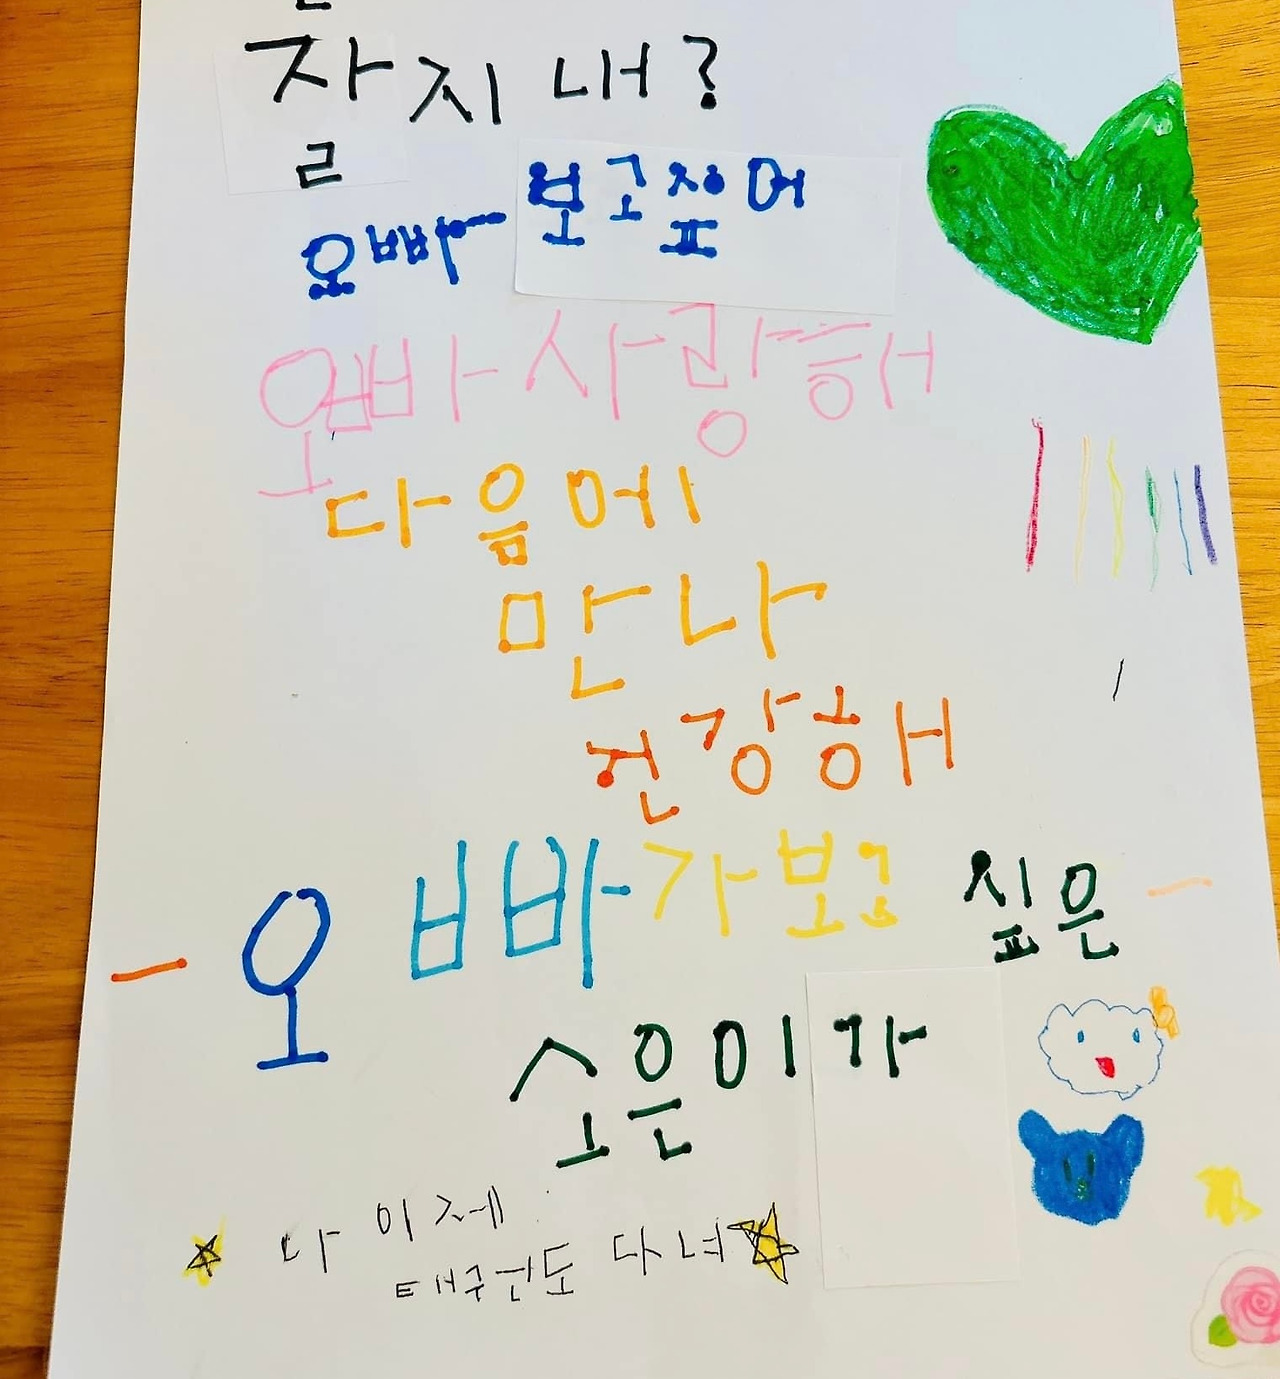 잘 지내?
오빠 보고싶어
오빠 사랑해
다음에
만나
건강해
- 오빠가 보고 싶은 -
소은이가
나 이제
태권도 다녀